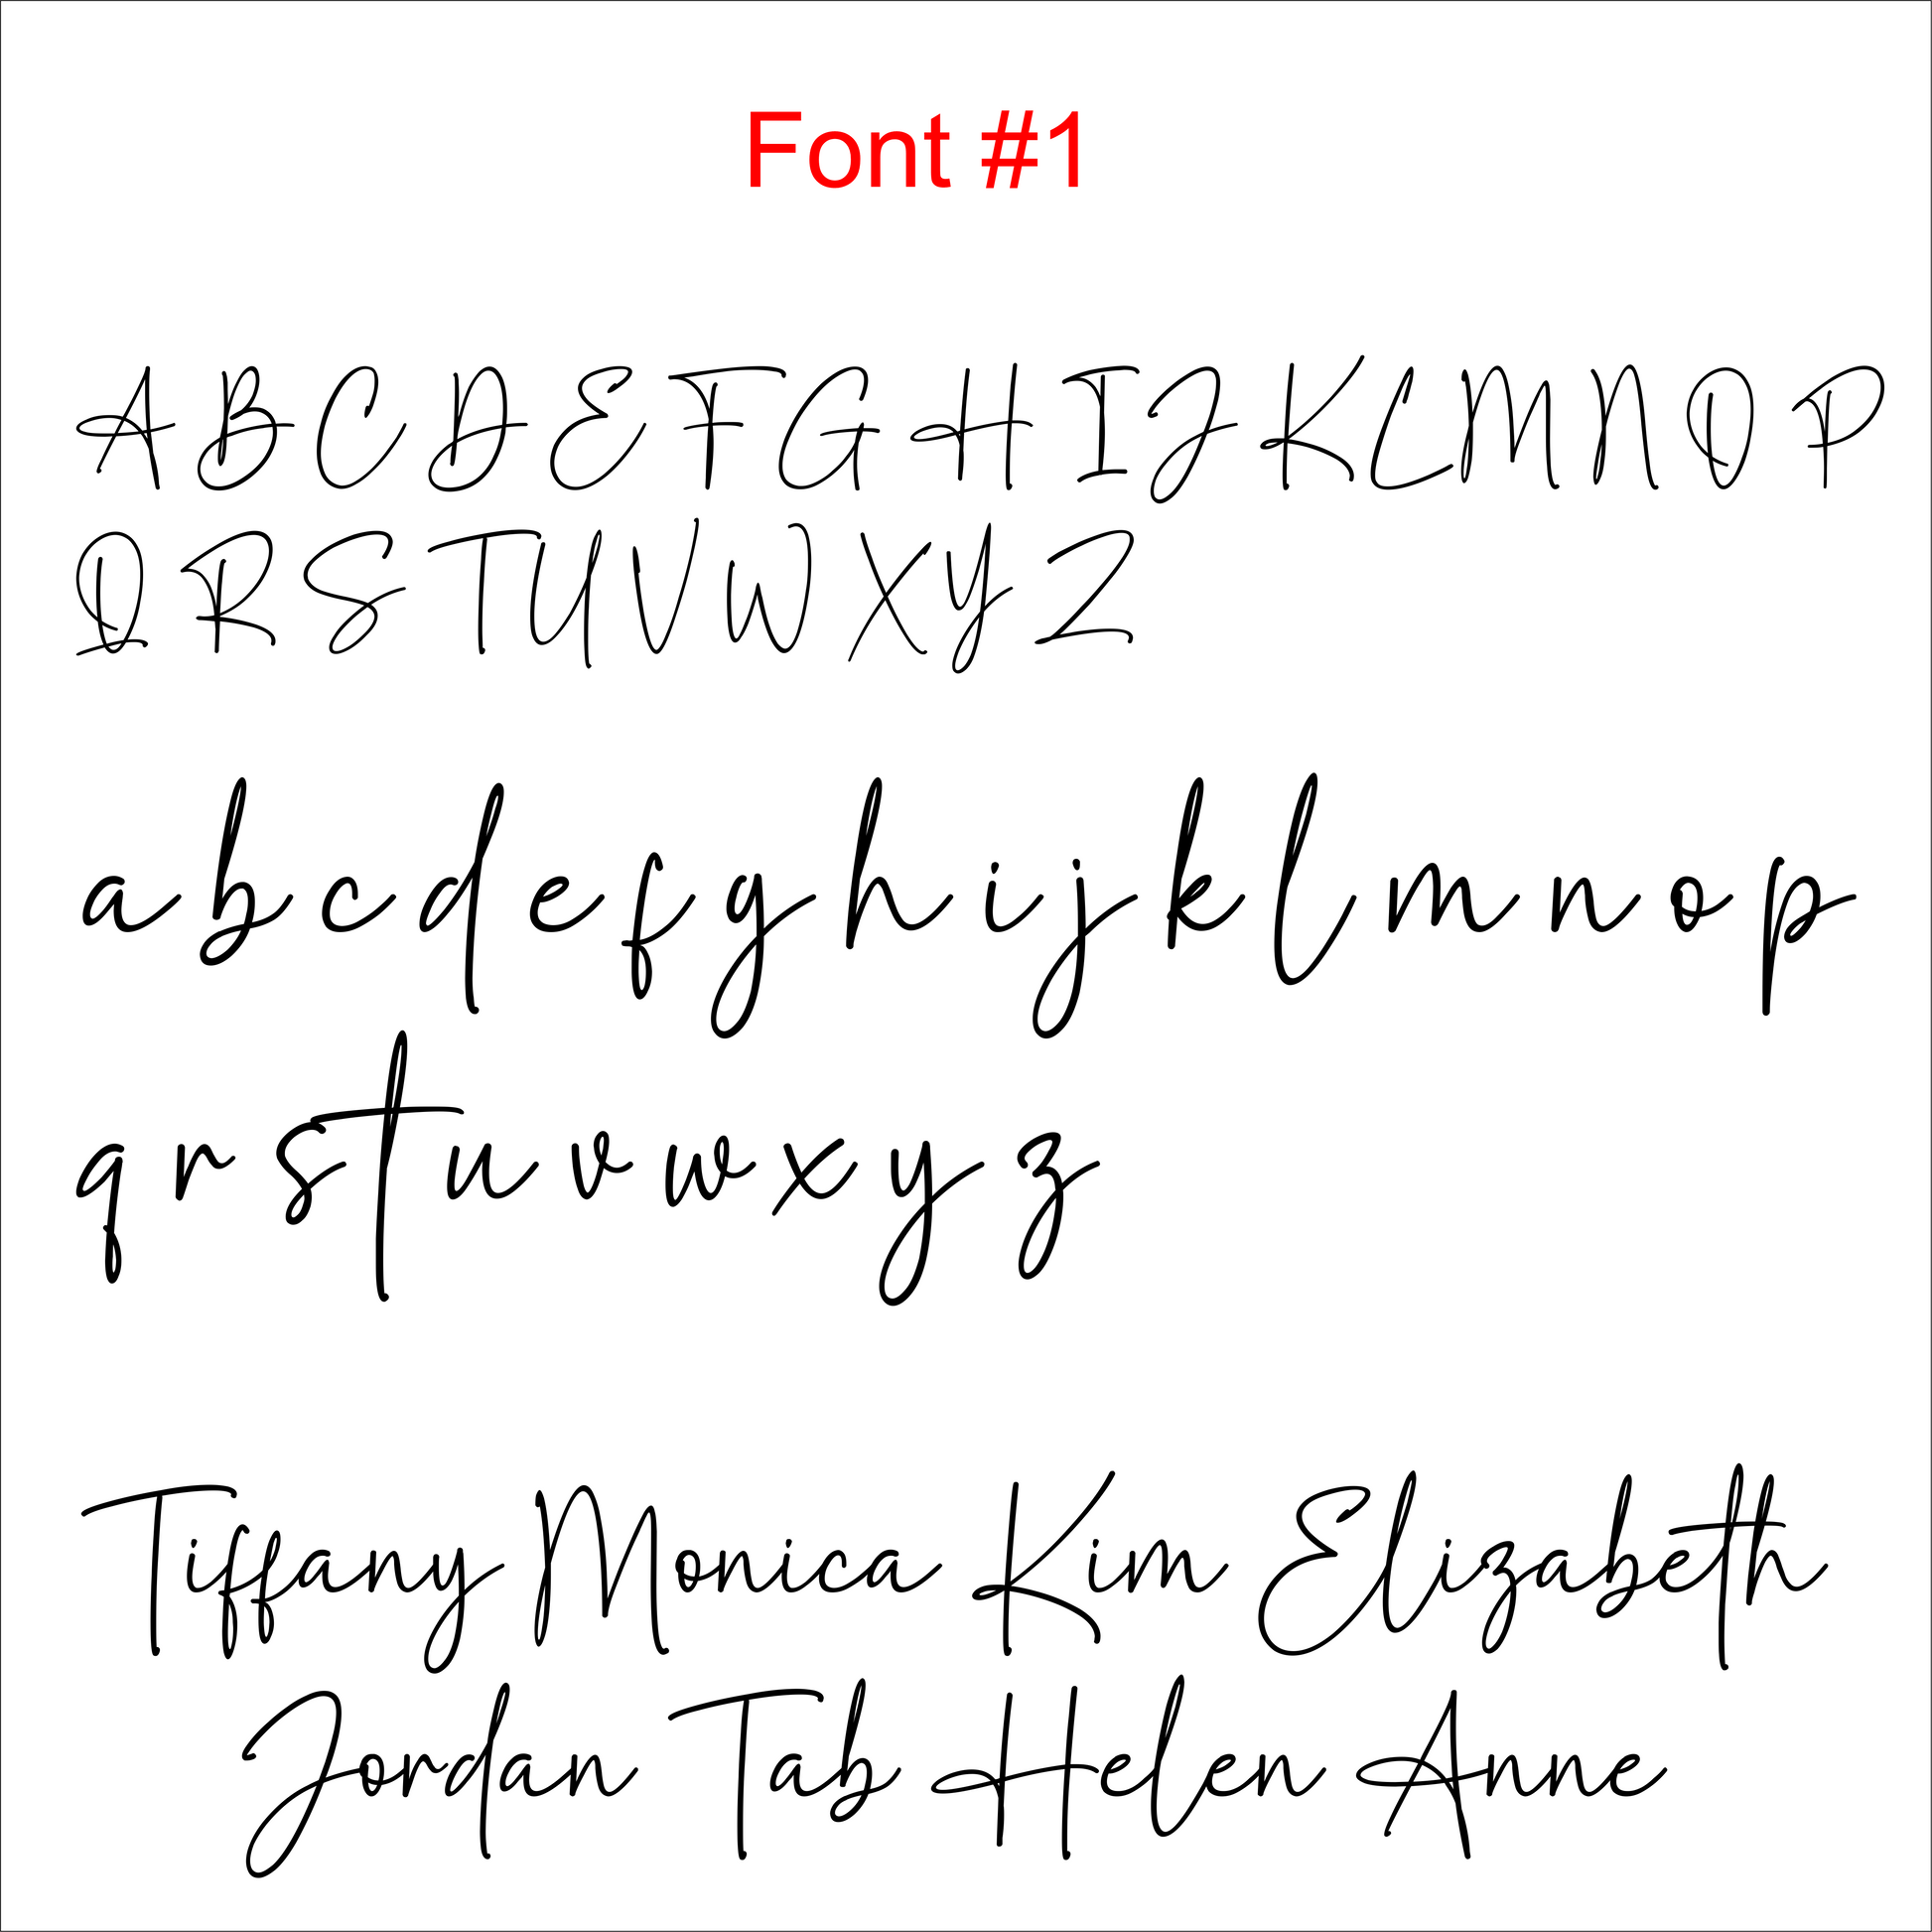 Font #1
A B C D E F G H I J K L M N O P
Q R S T U V W X Y Z
a b c d e f g h i j k l m n o p
q r s t u v w x y z
Tiffany Monica Kim Elizabeth
Jordan Tab Helen Anne